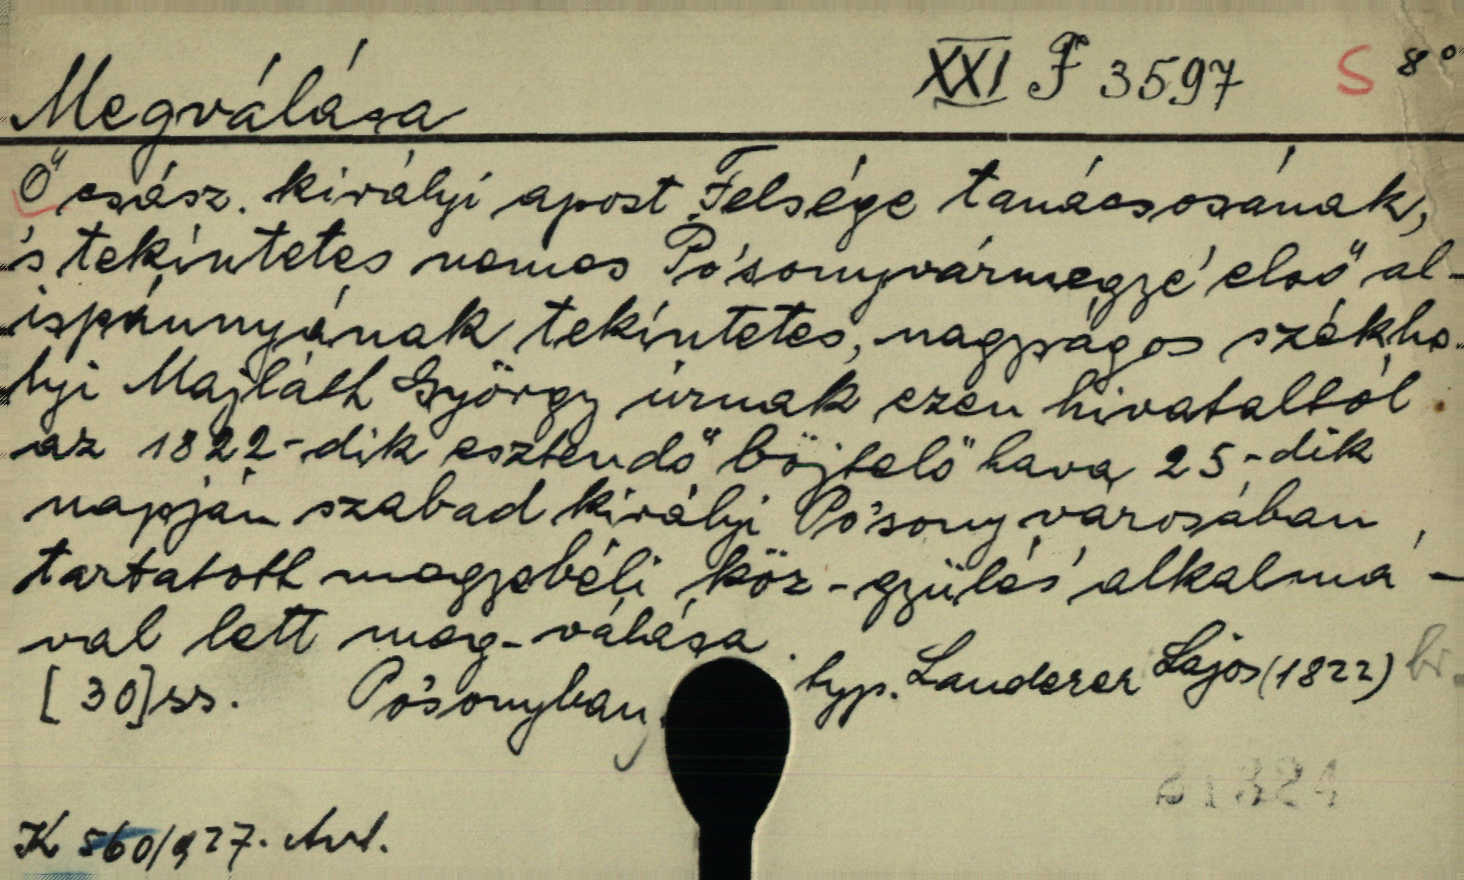 XXI F 3597 S 8°
Megválása
Ő csász. királyi apost. Felsége tanácsosának,
's tekíntetes nemes Po'sonyvármegye' első al-
ispánnyának tekíntetes, nagyságos székhe-
lyi Majláth György úrnak ezen hivataltól
az 1822-dik esztendő böjtelő hava 25-dik
napján szabad királyi Po'sony városában
tartatott megyebéli köz-gyülés' alkalmá-
val lett meg-válása.
[30] ss. Po'sonyban, typ. Landerer Lajos (1822) br.
K 560/927. Ant.